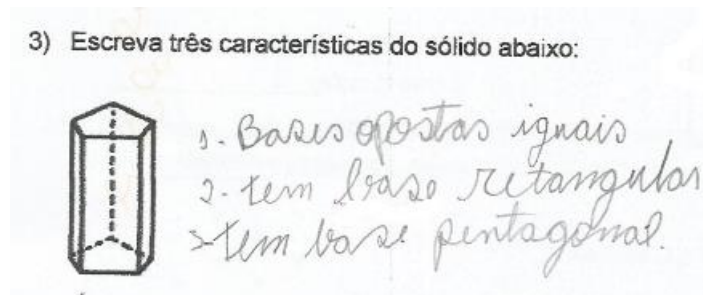 3) Escreva três características do sólido abaixo:
1. Bases opostas iguais
2. tem base retangular
3 tem base pentagonal.